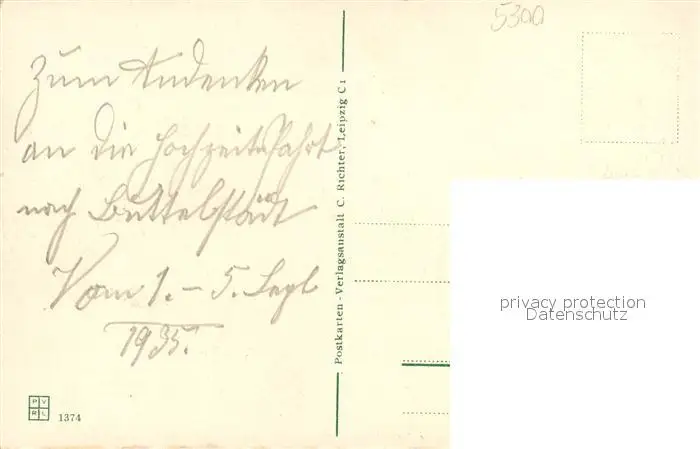 5300
Zum Andenken
an die Hochzeitsfahrt
nach Buttelstädt
Vom 1. – 5. Sept
1935.
Postkarten-Verlagsanstalt C. Richter, Leipzig C 1
PVRL
1374
privacy protection
Datenschutz